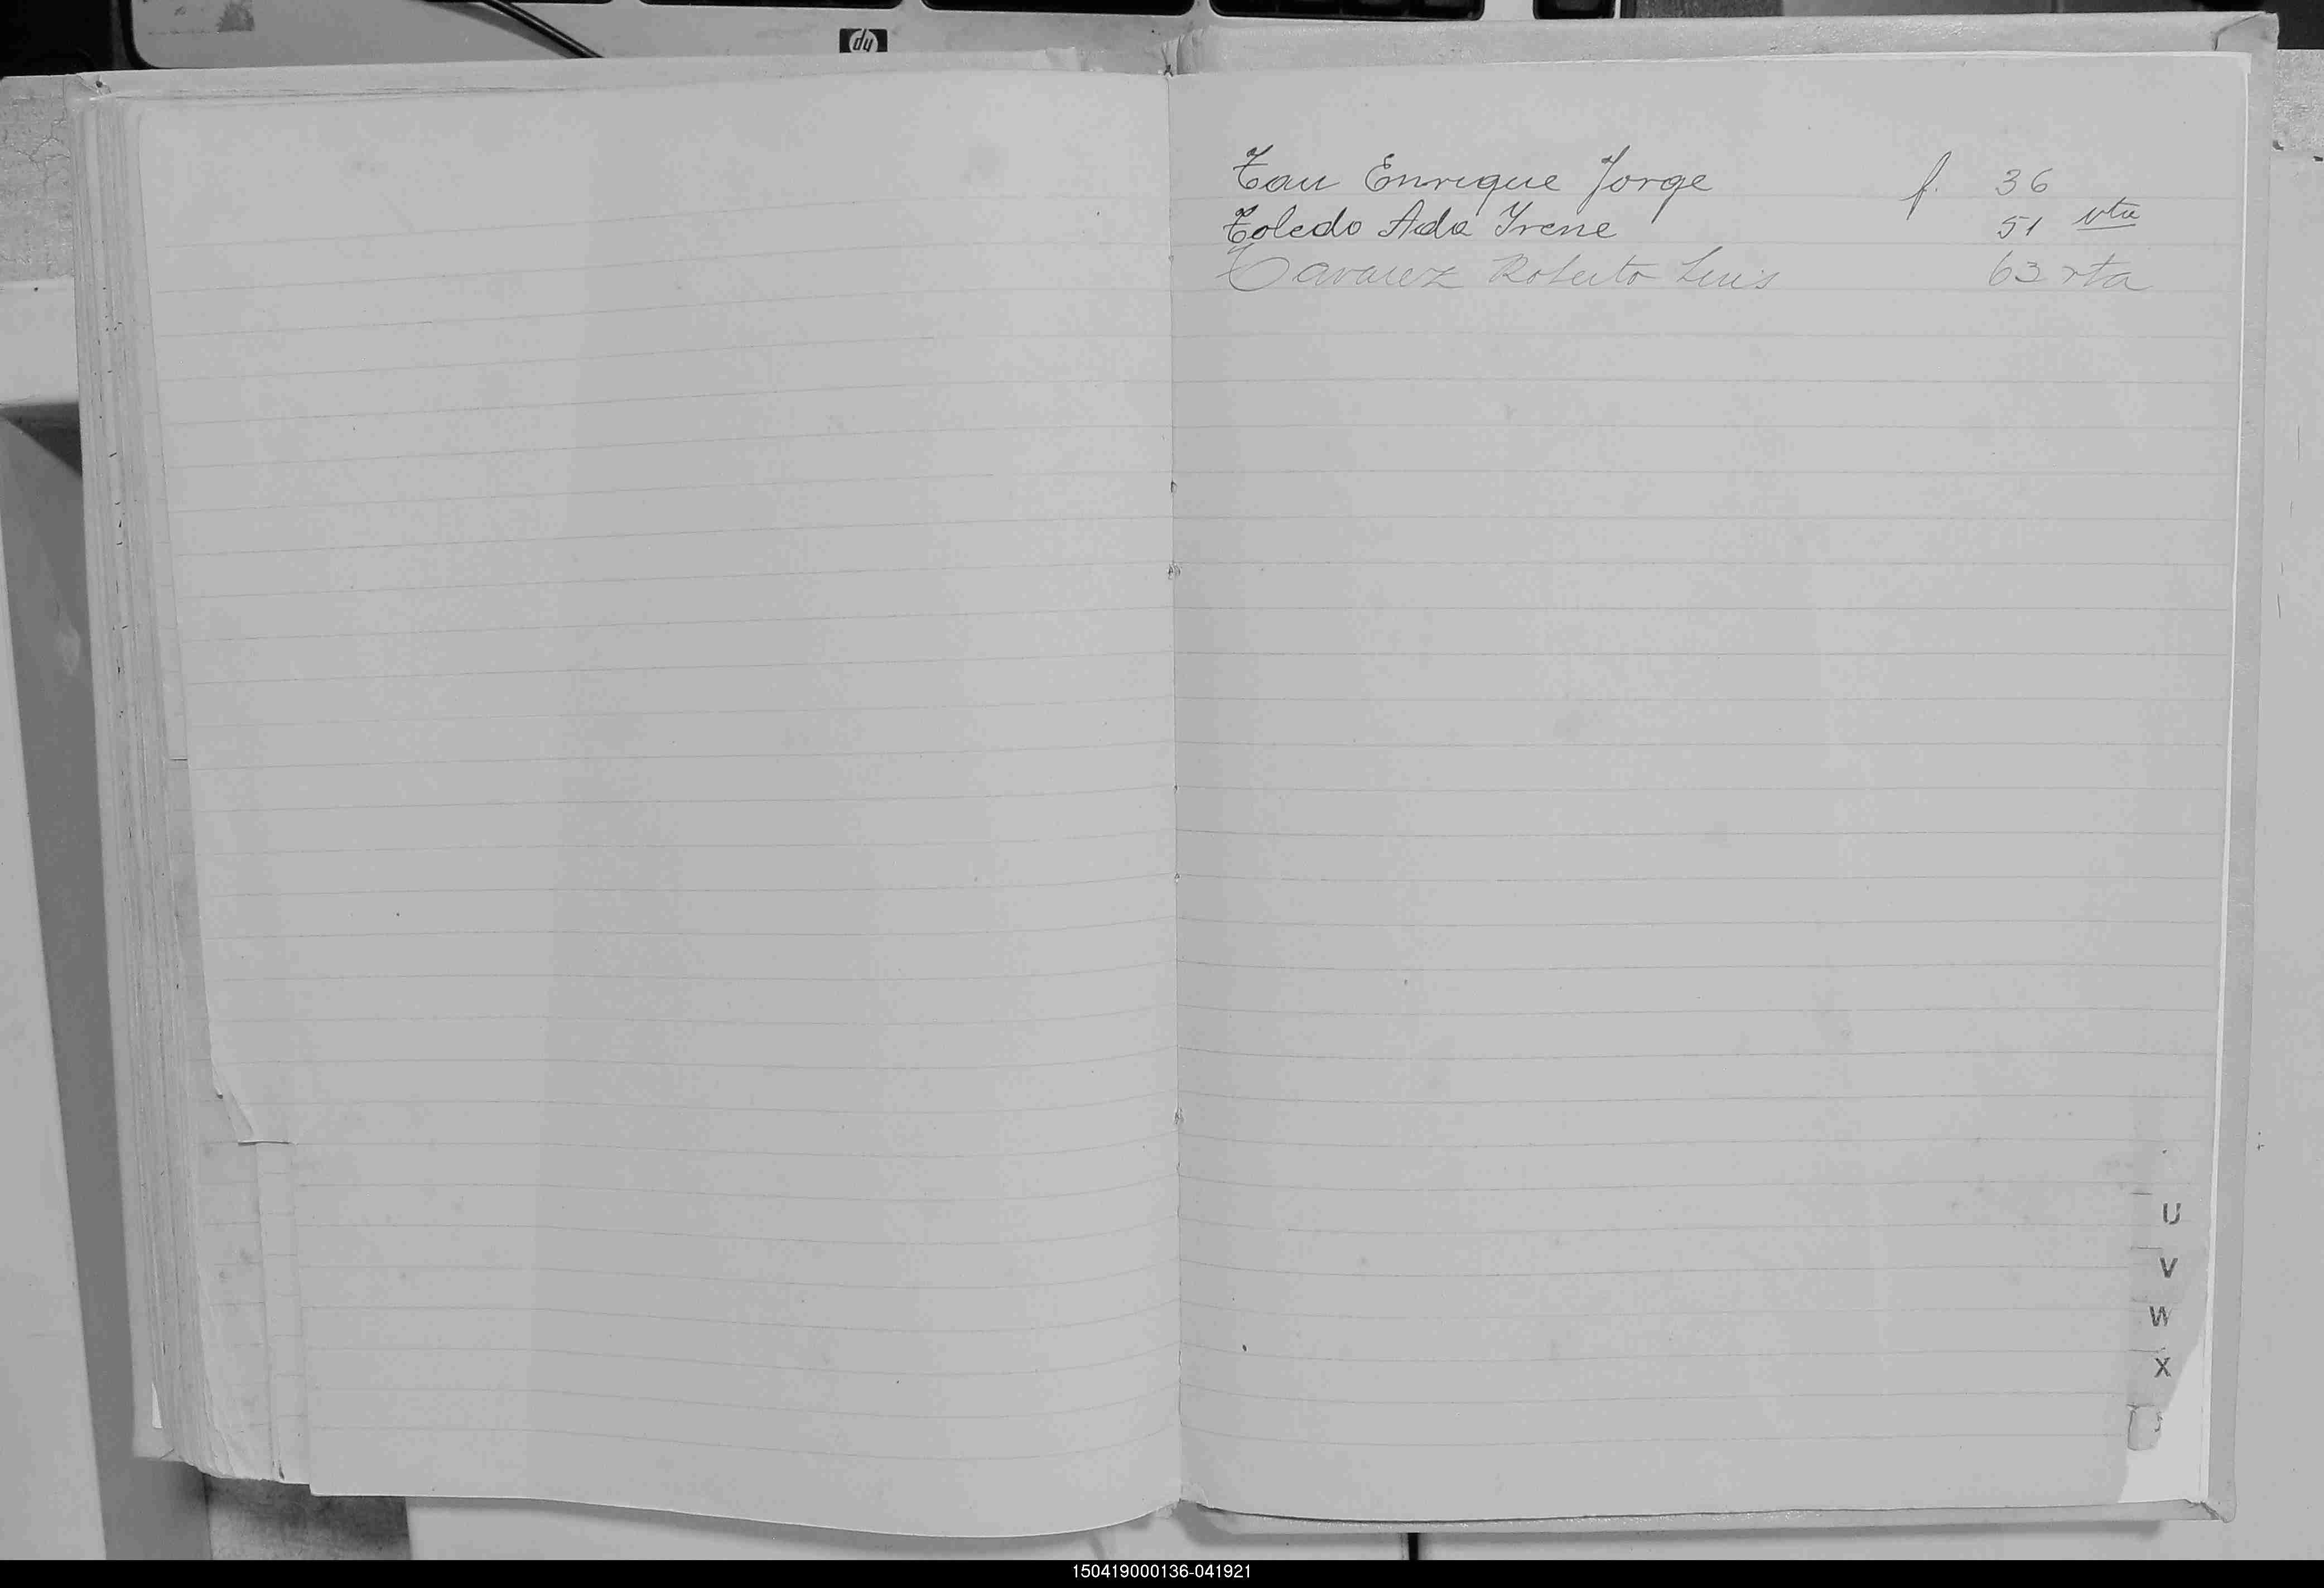 hp
Tau Enrique Jorge f. 36
Toledo Ada Irene 51 vta
Tavarez Roberto Luis 63 vta
U
V
W
X
150419000136-041921